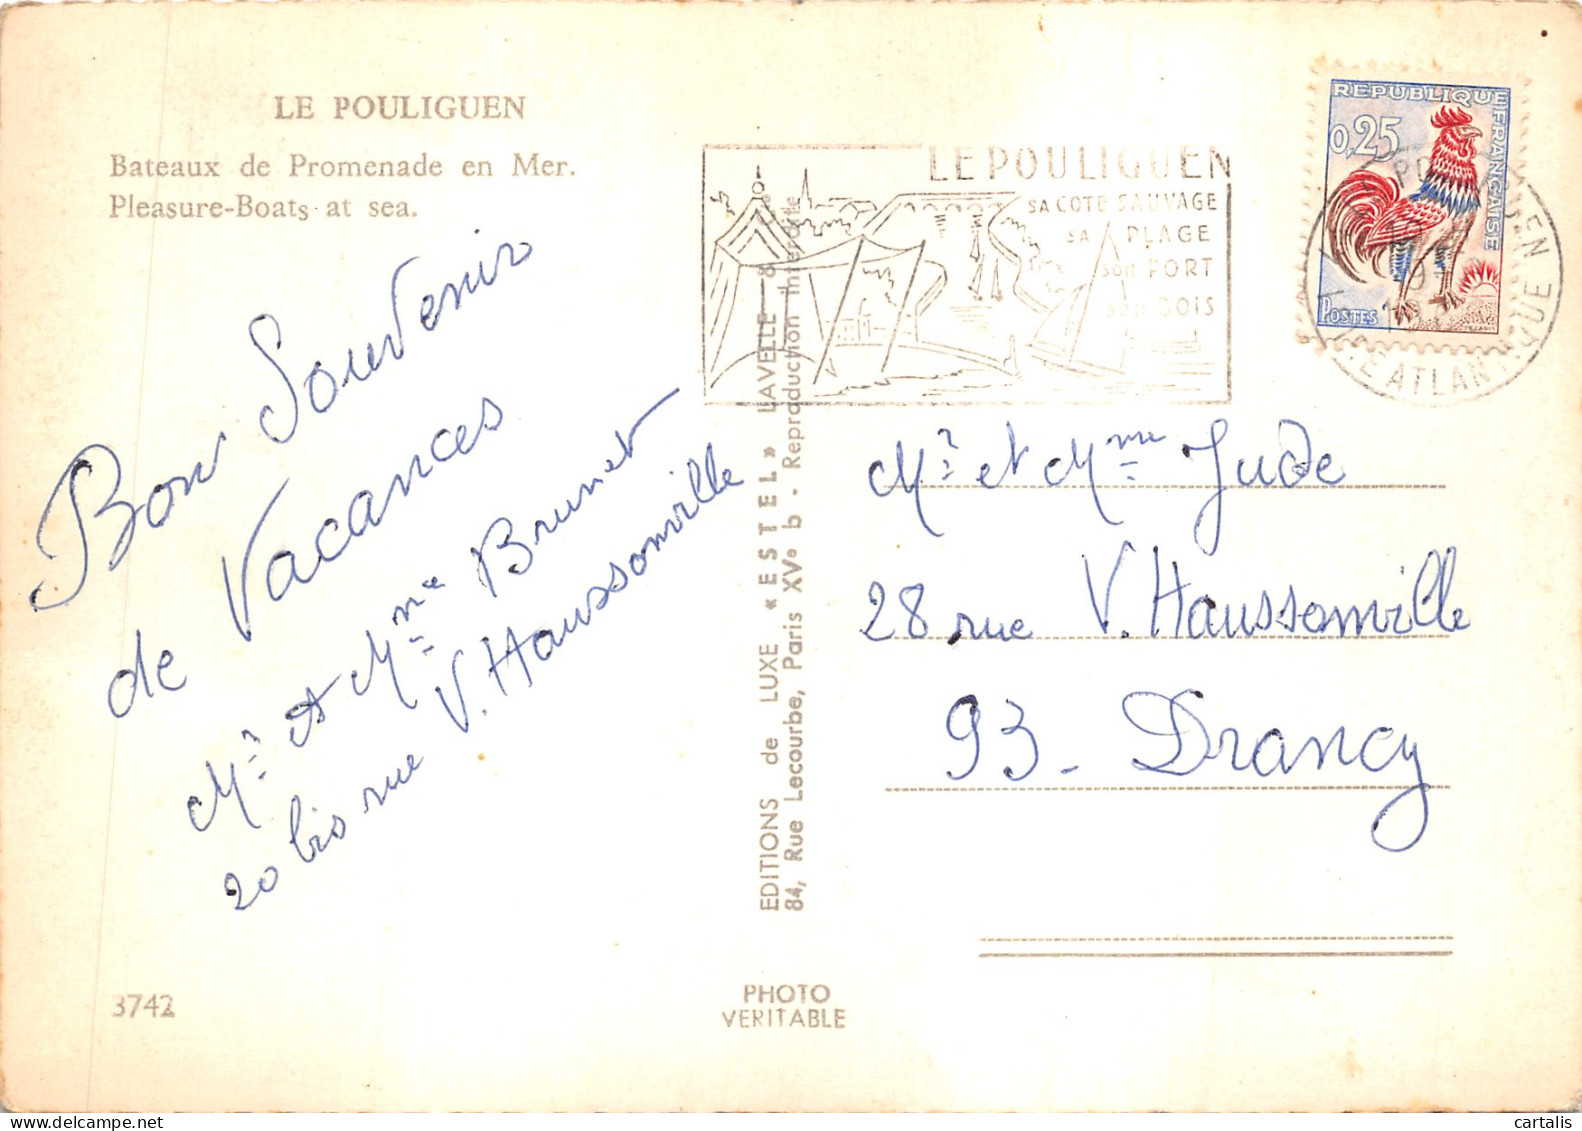 LE POULIGUEN
Bateaux de Promenade en Mer.
Pleasure-Boats at sea.
Bon Souvenir
de Vacances
Mr et Mme Brunet
20 bis rue V. Haussonville
3742
EDITIONS de LUXE « ESTEL » LAVELLE
84, Rue Lecourbe, Paris XVe b - Reproduction Interdite
PHOTO
VERITABLE
LE POULIGUEN
SA COTE SAUVAGE
SA PLAGE
SON PORT
SON BOIS
REPUBLIQUE FRANÇAISE
0,25
POSTES
LE POULIGUEN
LOIRE ATLANTIQUE
Mr et Mme Jude
28 rue V. Haussonville
93 - Drancy
cartalis
delcampe.net